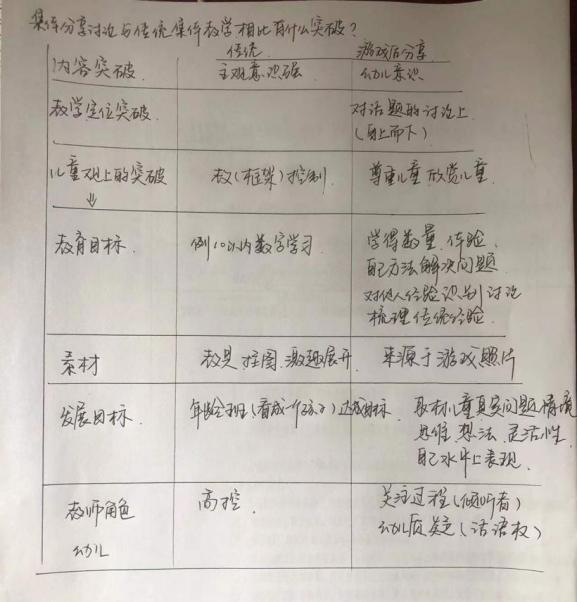 集体分享讨论与传统集体教学相比有什么突破?
传统 游戏后分享
内容突破. 主观意识强 幼儿意识
教学定位突破. 对话题的讨论上
(自上而下)
儿童观上的突破 教(框架)控制 尊重儿童 欣赏儿童.
↓
教育目标. 例10以内数字学习 学得数量.体验.
自己方法解决问题.
对他人经验识别讨论
梳理传统经验.
素材 教具 挂图 激趣展开. 来源于游戏照片
发展目标. 年龄班(看成一个孩子)达成目标. 取材儿童真实问题情境
思维.想法.灵活性.
自己水平上表现.
教师角色 高控. 关注过程(倾听者)
幼儿 幼儿质疑(话语权)